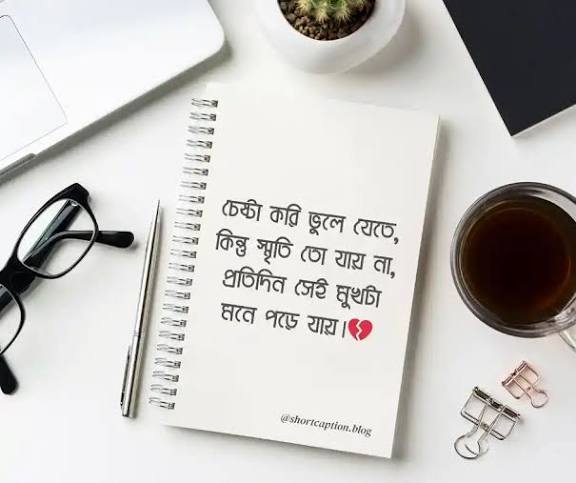 চেষ্টা করি ভুলে যেতে,
কিন্তু স্মৃতি তো যায় না,
প্রতিদিন সেই মুখটা
মনে পড়ে যায়।💔
@shortcaption.blog